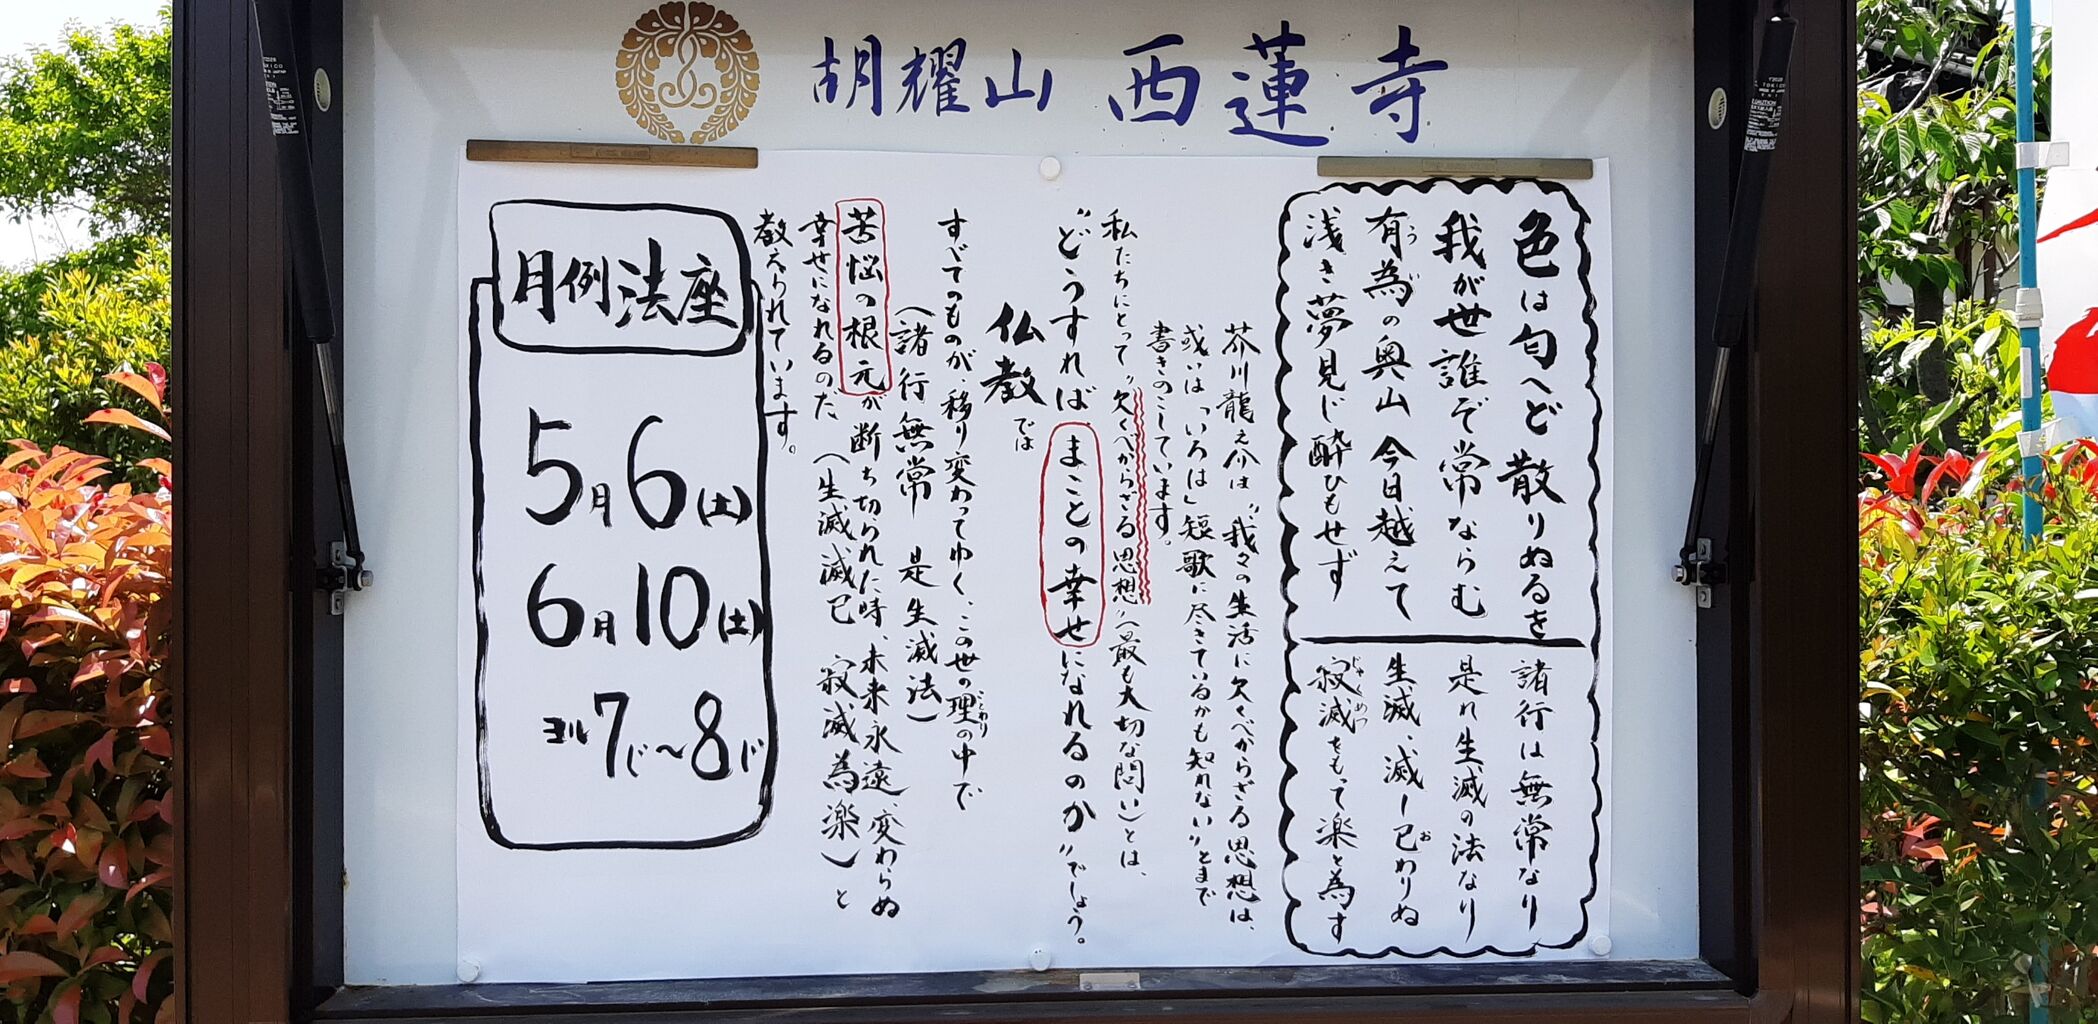 胡耀山 西蓮寺
色は匂へど散りぬるを
我が世誰ぞ常ならむ
有為の奥山今日越えて
うゐ
浅き夢見じ酔ひもせず
諸行は無常なり
是れ生滅の法なり
生滅、滅し已わりぬ
お
寂滅をもって楽と為す
じゃくめつ
芥川龍之介は、“我々の生活に欠くべからざる思想は、
或いは「いろは」短歌に尽きているかも知れない”とまで
書きのこしています。
私たちにとって“欠くべからざる思想”(最も大切な問い)とは、
“どうすればまことの幸せになれるのか”でしょう。
仏教では
すべてのものが、移り変わってゆく、この世の理の中で
ことわり
(諸行無常 是生滅法)
苦悩の根元が断ち切られた時、未来永遠、変わらぬ
幸せになれるのだ (生滅滅已 寂滅為楽)と
教えられています。
月例法座
5月6(土)
6月10(土)
ヨル7じ〜8じ